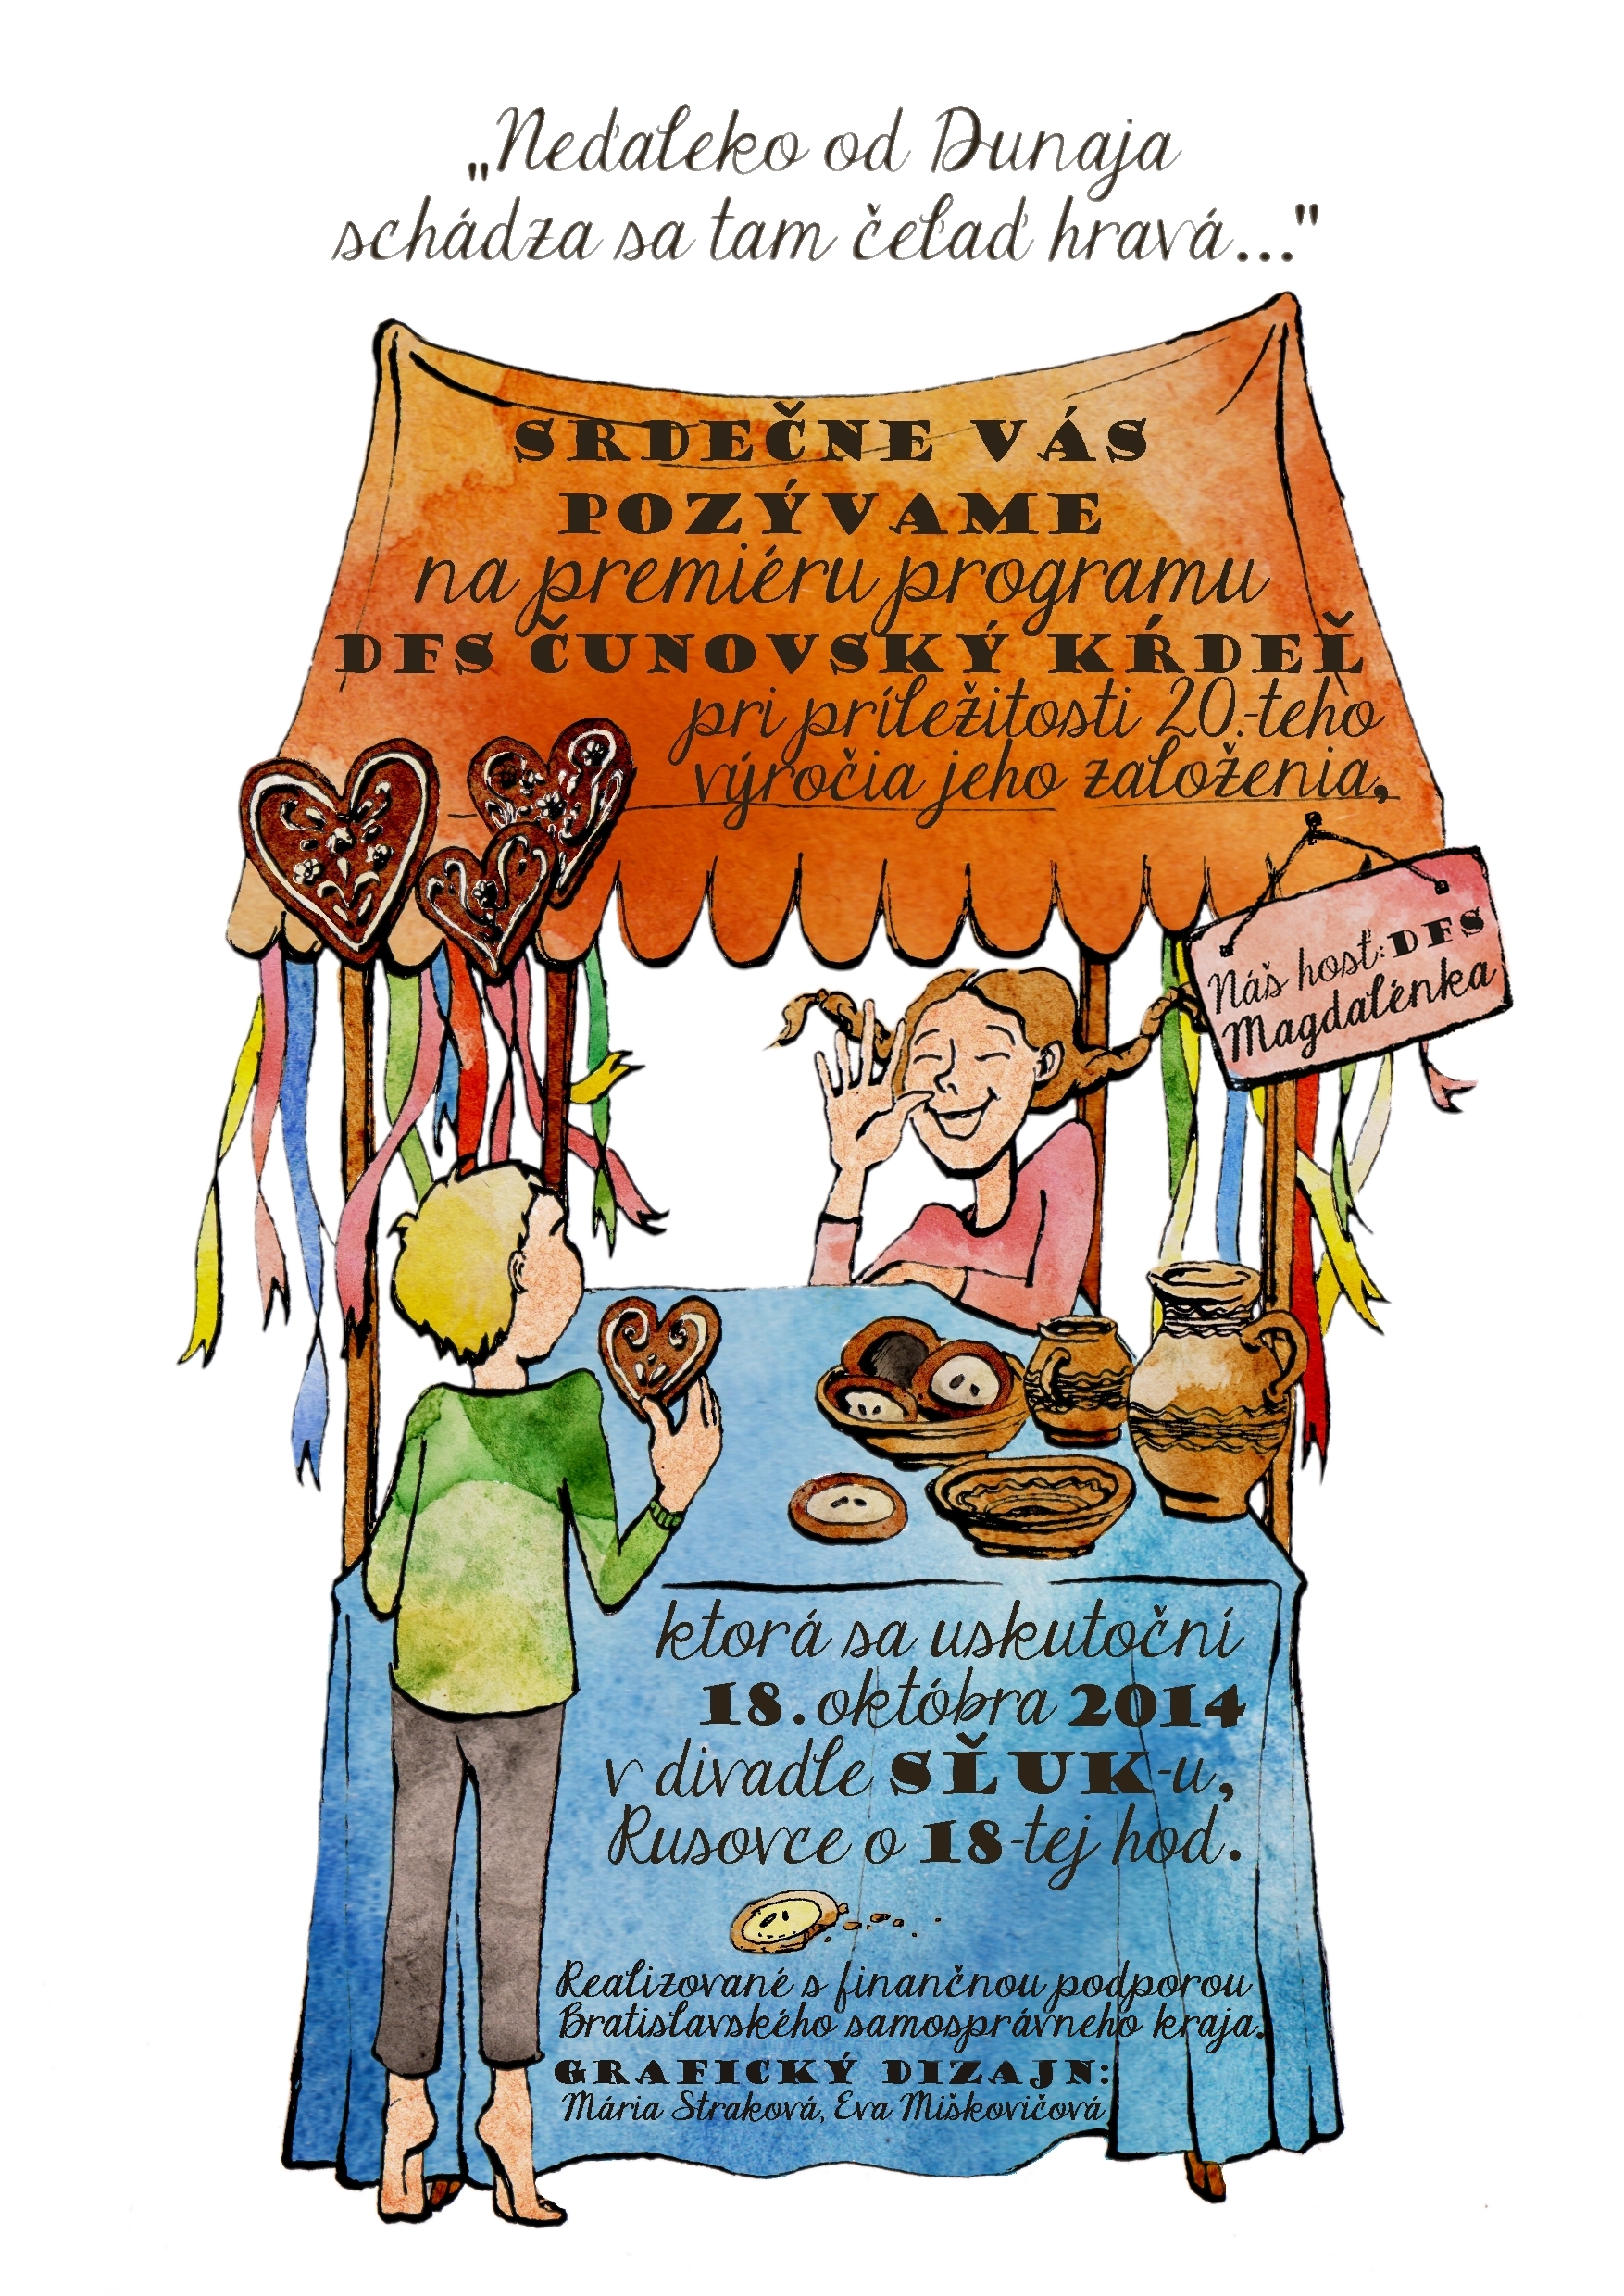 „Neďaleko od Dunaja
schádza sa tam čeľaď hravá..."
SRDEČNE VÁS
POZÝVAME
na premiéru programu
DFS ČUNOVSKÝ KŔDEĽ
pri príležitosti 20.-teho
výročia jeho založenia,
Náš hosť: DFS
Magdalénka
ktorá sa uskutoční
18. októbra 2014
v divadle SĽUK-u,
Rusovce o 18-tej hod.
Realizované s finančnou podporou
Bratislavského samosprávneho kraja.
GRAFICKÝ DIZAJN:
Mária Straková, Eva Miškovičová